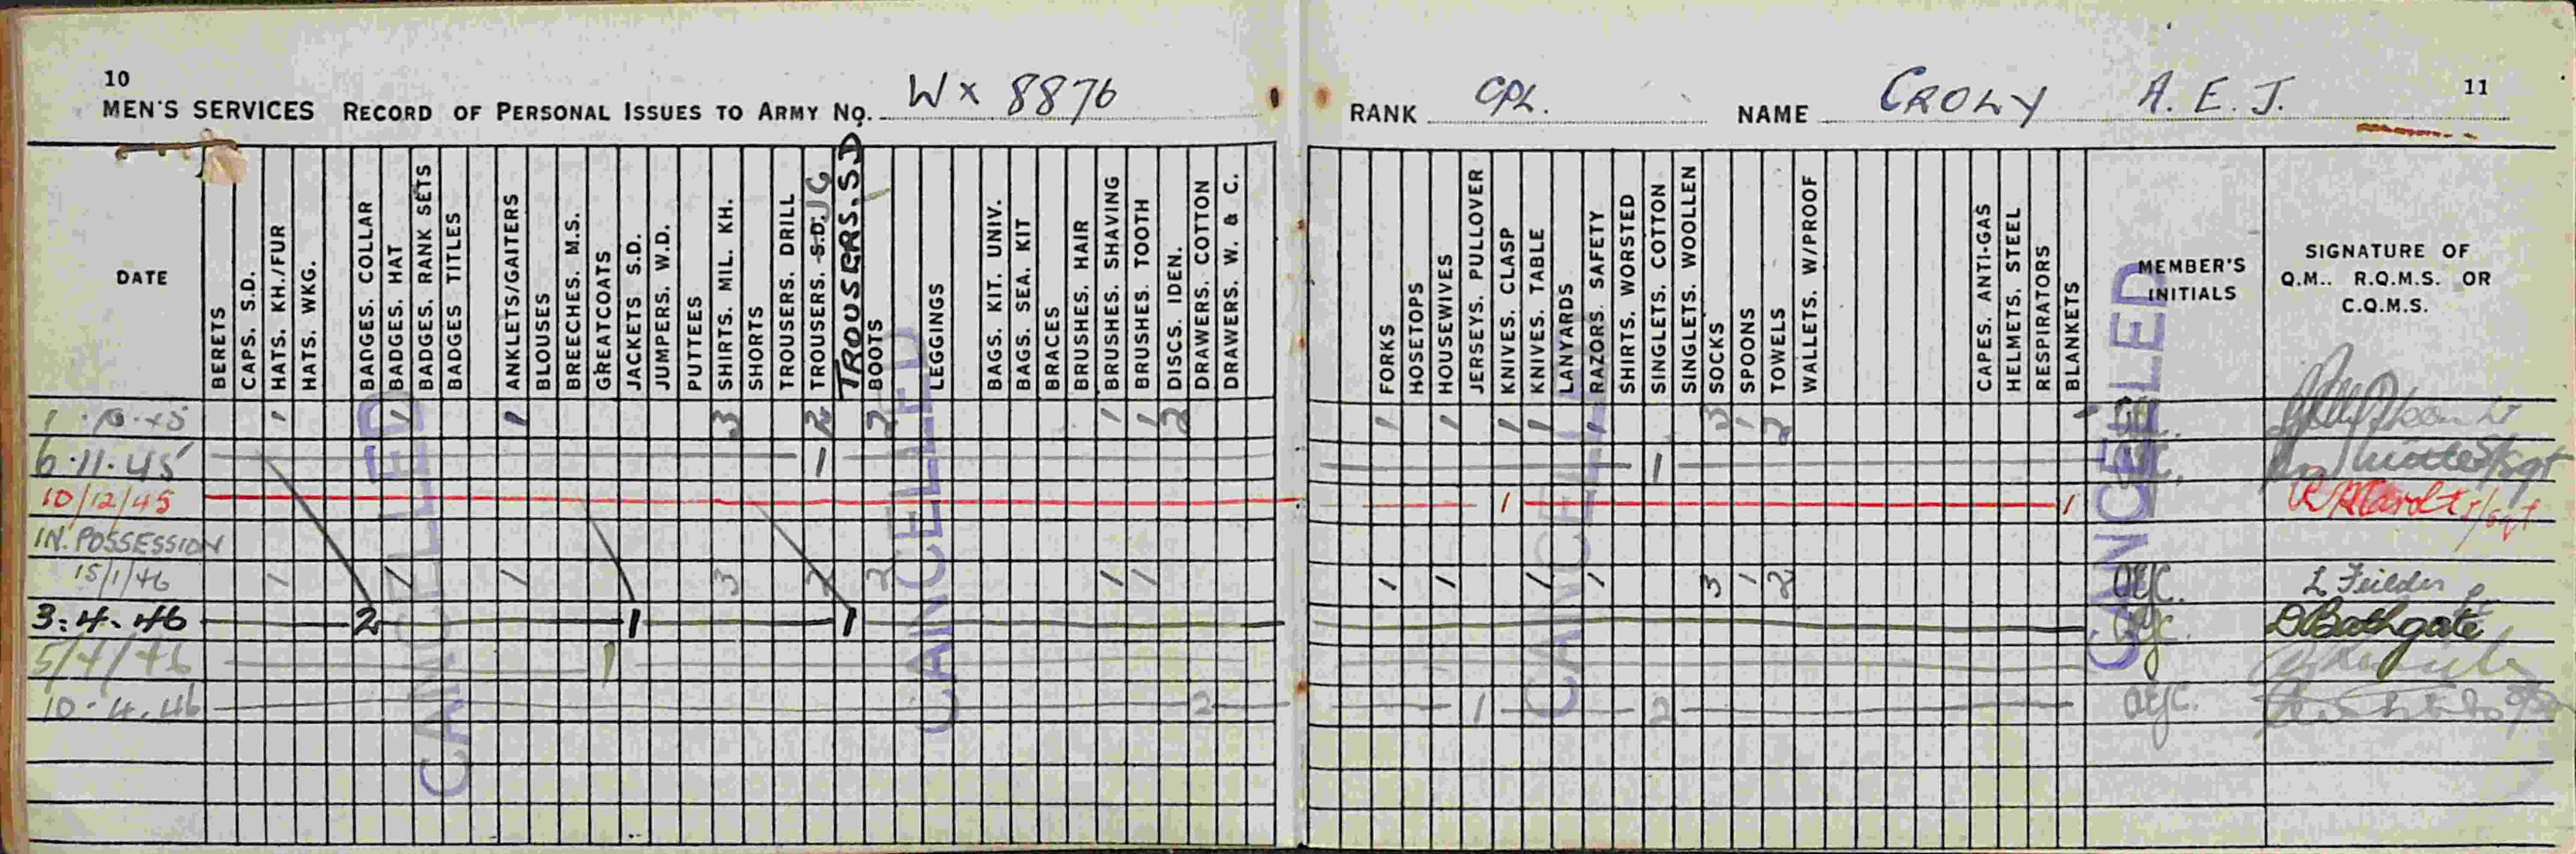 10
MEN'S SERVICES RECORD OF PERSONAL ISSUES TO ARMY NO. WX 8876
DATE
BERETS
CAPS. S.D.
HATS. KH./FUR
HATS. WKG.
BADGES. COLLAR
BADGES. HAT
BADGES. RANK SETS
BADGES TITLES
ANKLETS/GAITERS
BLOUSES
BREECHES. M.S.
GREATCOATS
JACKETS S.D.
JUMPERS. W.D.
PUTTEES
SHIRTS. MIL. KH.
SHORTS
TROUSERS. DRILL
TROUSERS. S.D. JG
TROUSERS. S.D
BOOTS
LEGGINGS
BAGS. KIT. UNIV.
BAGS. SEA. KIT
BRACES
BRUSHES. HAIR
BRUSHES. SHAVING
BRUSHES. TOOTH
DISCS. IDEN.
DRAWERS. COTTON
DRAWERS. W. & C.
1 1 1 3 2 2 1 1 2
6·11·45 1
10/12/45
IN. POSSESSION
15/1/46 1 1 1 3 2 2 1 1
3.4.46 2 1 1
5/4/46 1
10.4.46 2
CANCELLED
CANCELLED
RANK CPL. NAME CROWY A. E. J. 11
FORKS
HOSETOPS
HOUSEWIVES
JERSEYS. PULLOVER
KNIVES. CLASP
KNIVES. TABLE
LANYARDS
RAZORS. SAFETY
SHIRTS. WORSTED
SINGLETS. COTTON
SINGLETS. WOOLLEN
SOCKS
SPOONS
TOWELS
WALLETS. W/PROOF
CAPES. ANTI-GAS
HELMETS. STEEL
RESPIRATORS
BLANKETS
MEMBER'S
INITIALS
SIGNATURE OF
Q.M.. R.Q.M.S. OR
C.Q.M.S.
1 1 1 1 1 3 1 2
1 S/Sgt
1 1 S/Sgt
1 1 1 1 3 1 2 L Feilder
DBathgate
1 2
CANCELLED
CANCELLED